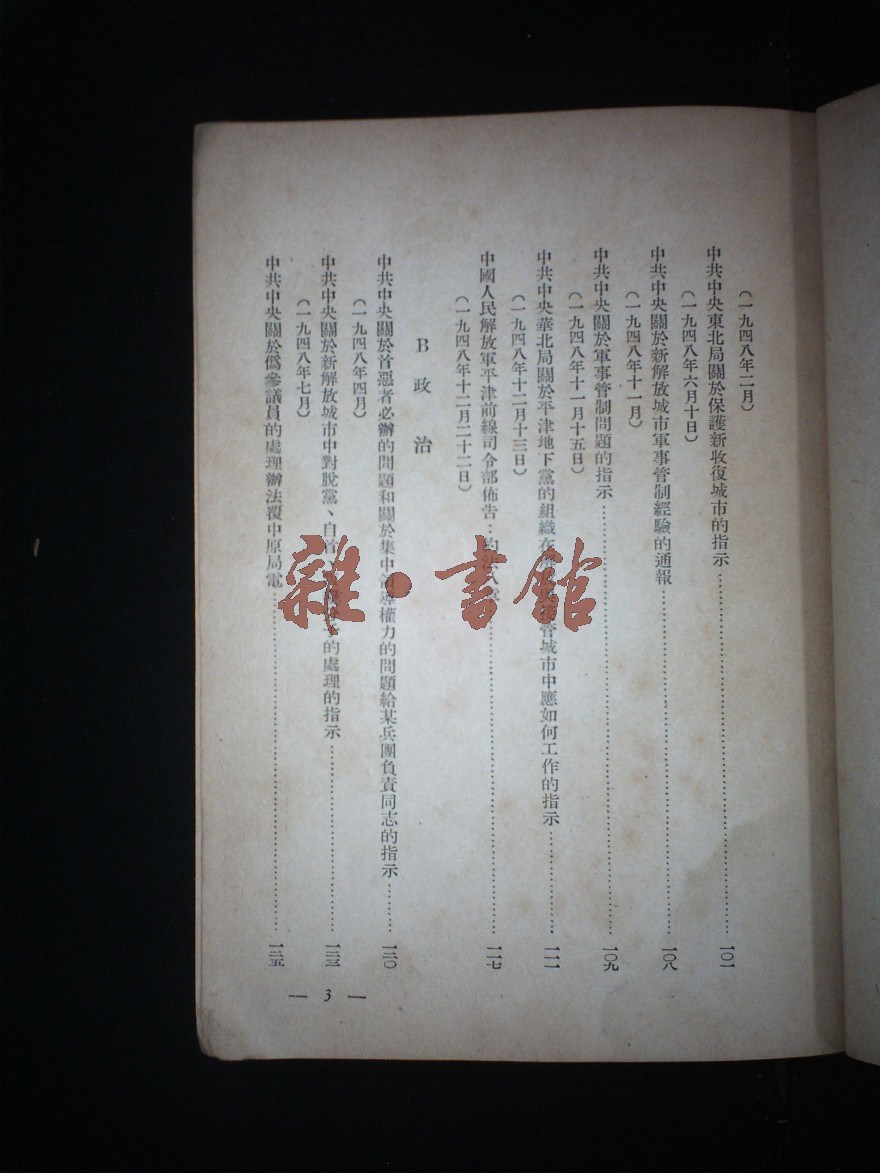 （一九四八年二月）
中共中央東北局關於保護新收復城市的指示……一〇一
（一九四八年六月十日）
中共中央關於新解放城市軍事管制經驗的通報……一〇八
（一九四八年十一月）
中共中央關於軍事管制問題的指示……一〇九
（一九四八年十一月十五日）
中共中央華北局關於平津地下黨的組織在 管城市中應如何工作的指示……一一一
（一九四八年十二月十三日）
中國人民解放軍平津前線司令部佈告：約法八章……一一七
（一九四八年十二月二十二日）
B 政治
中共中央關於首惡者必辦的問題和關於集中領導權力的問題給某兵團負責同志的指示……
（一九四八年四月）
中共中央關於新解放城市中對脫黨、自首 的處理的指示……
（一九四八年七月）
中共中央關於僞參議員的處理辦法覆中原局電……
— 3 —
雜·書館